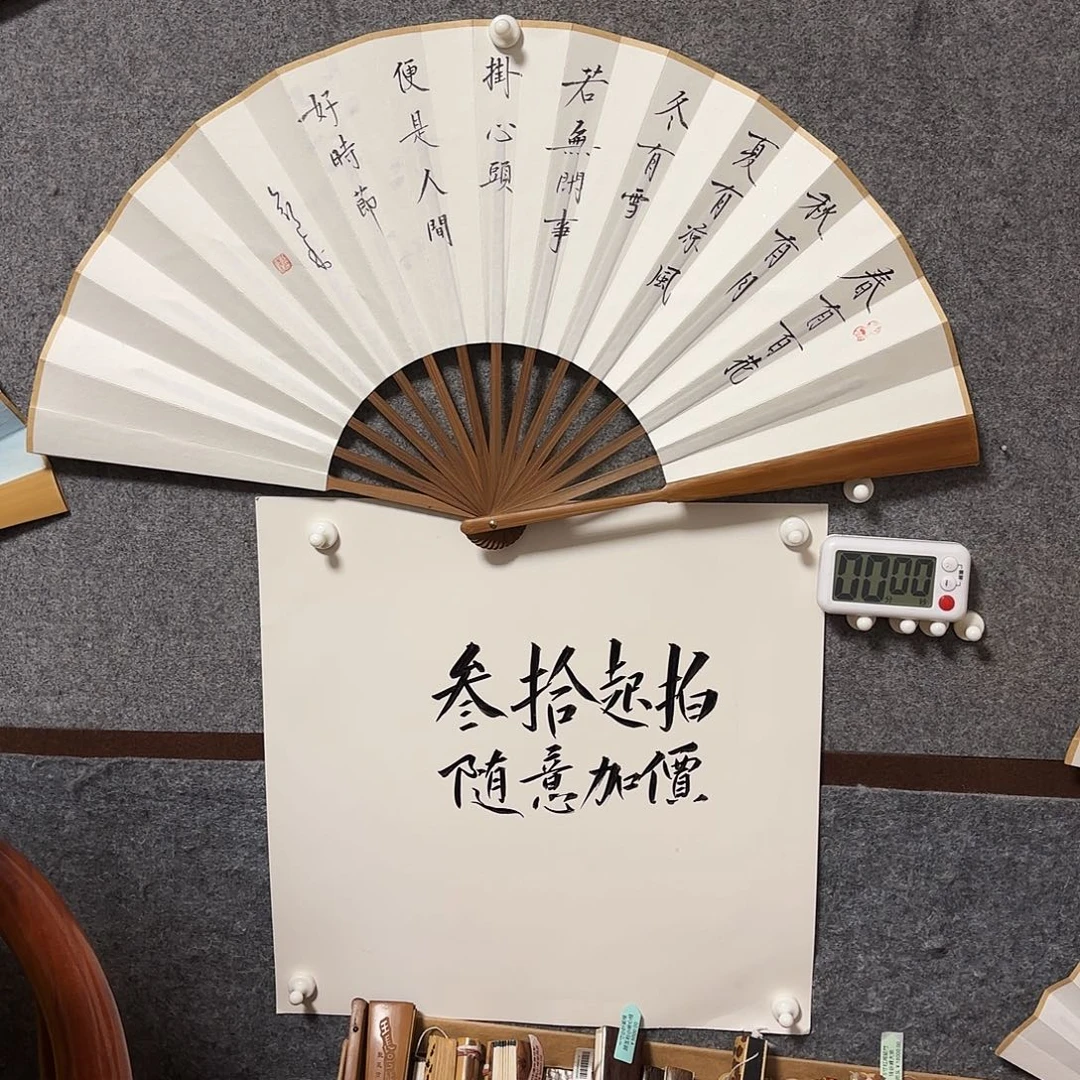 春有百花
秋有月
夏有涼風
冬有雪
若無閑事
掛心頭
便是人間
好時節
叁拾起拍
隨意加價
00分00秒